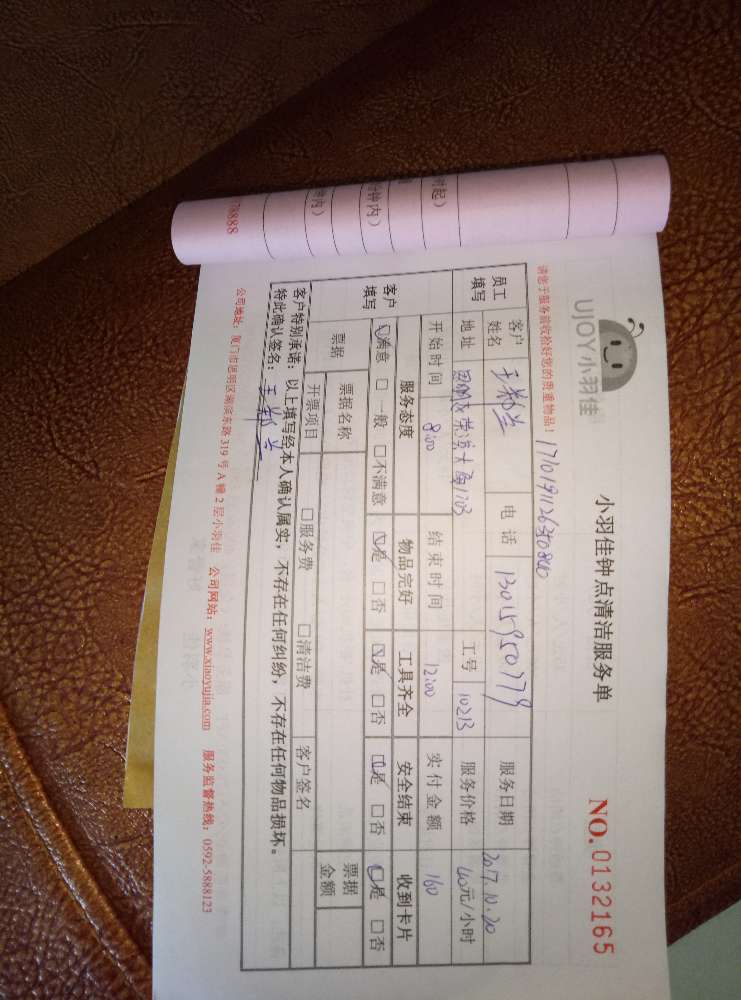 UJOY小羽佳
小羽佳钟点清洁服务单
NO.0132165
请您于服务前收拾好您的贵重物品！
员工填写 客户姓名 电话 服务日期 2017.10.20
地址 工号 10213 服务价格 40元/小时
开始时间 8:00 结束时间 12:00 实付金额 160
客户填写 服务态度 物品完好 工具齐全 安全结束 收到卡片
☑满意 □一般 □不满意 ☑是 □否 ☑是 □否 ☑是 □否 ☑是 □否
票据 票据名称 票据金额
开票项目 □服务费 □清洁费 客户签名
客户特别承诺：以上填写经本人确认属实，不存在任何纠纷，不存在任何物品损坏。
特此确认签名：
公司地址：厦门市思明区湖滨东路319号A幢2层小羽佳 公司网站：www.xiaoyujia.com 服务监督热线：0592-5888123
时起）
钟内）
钟内）
78888